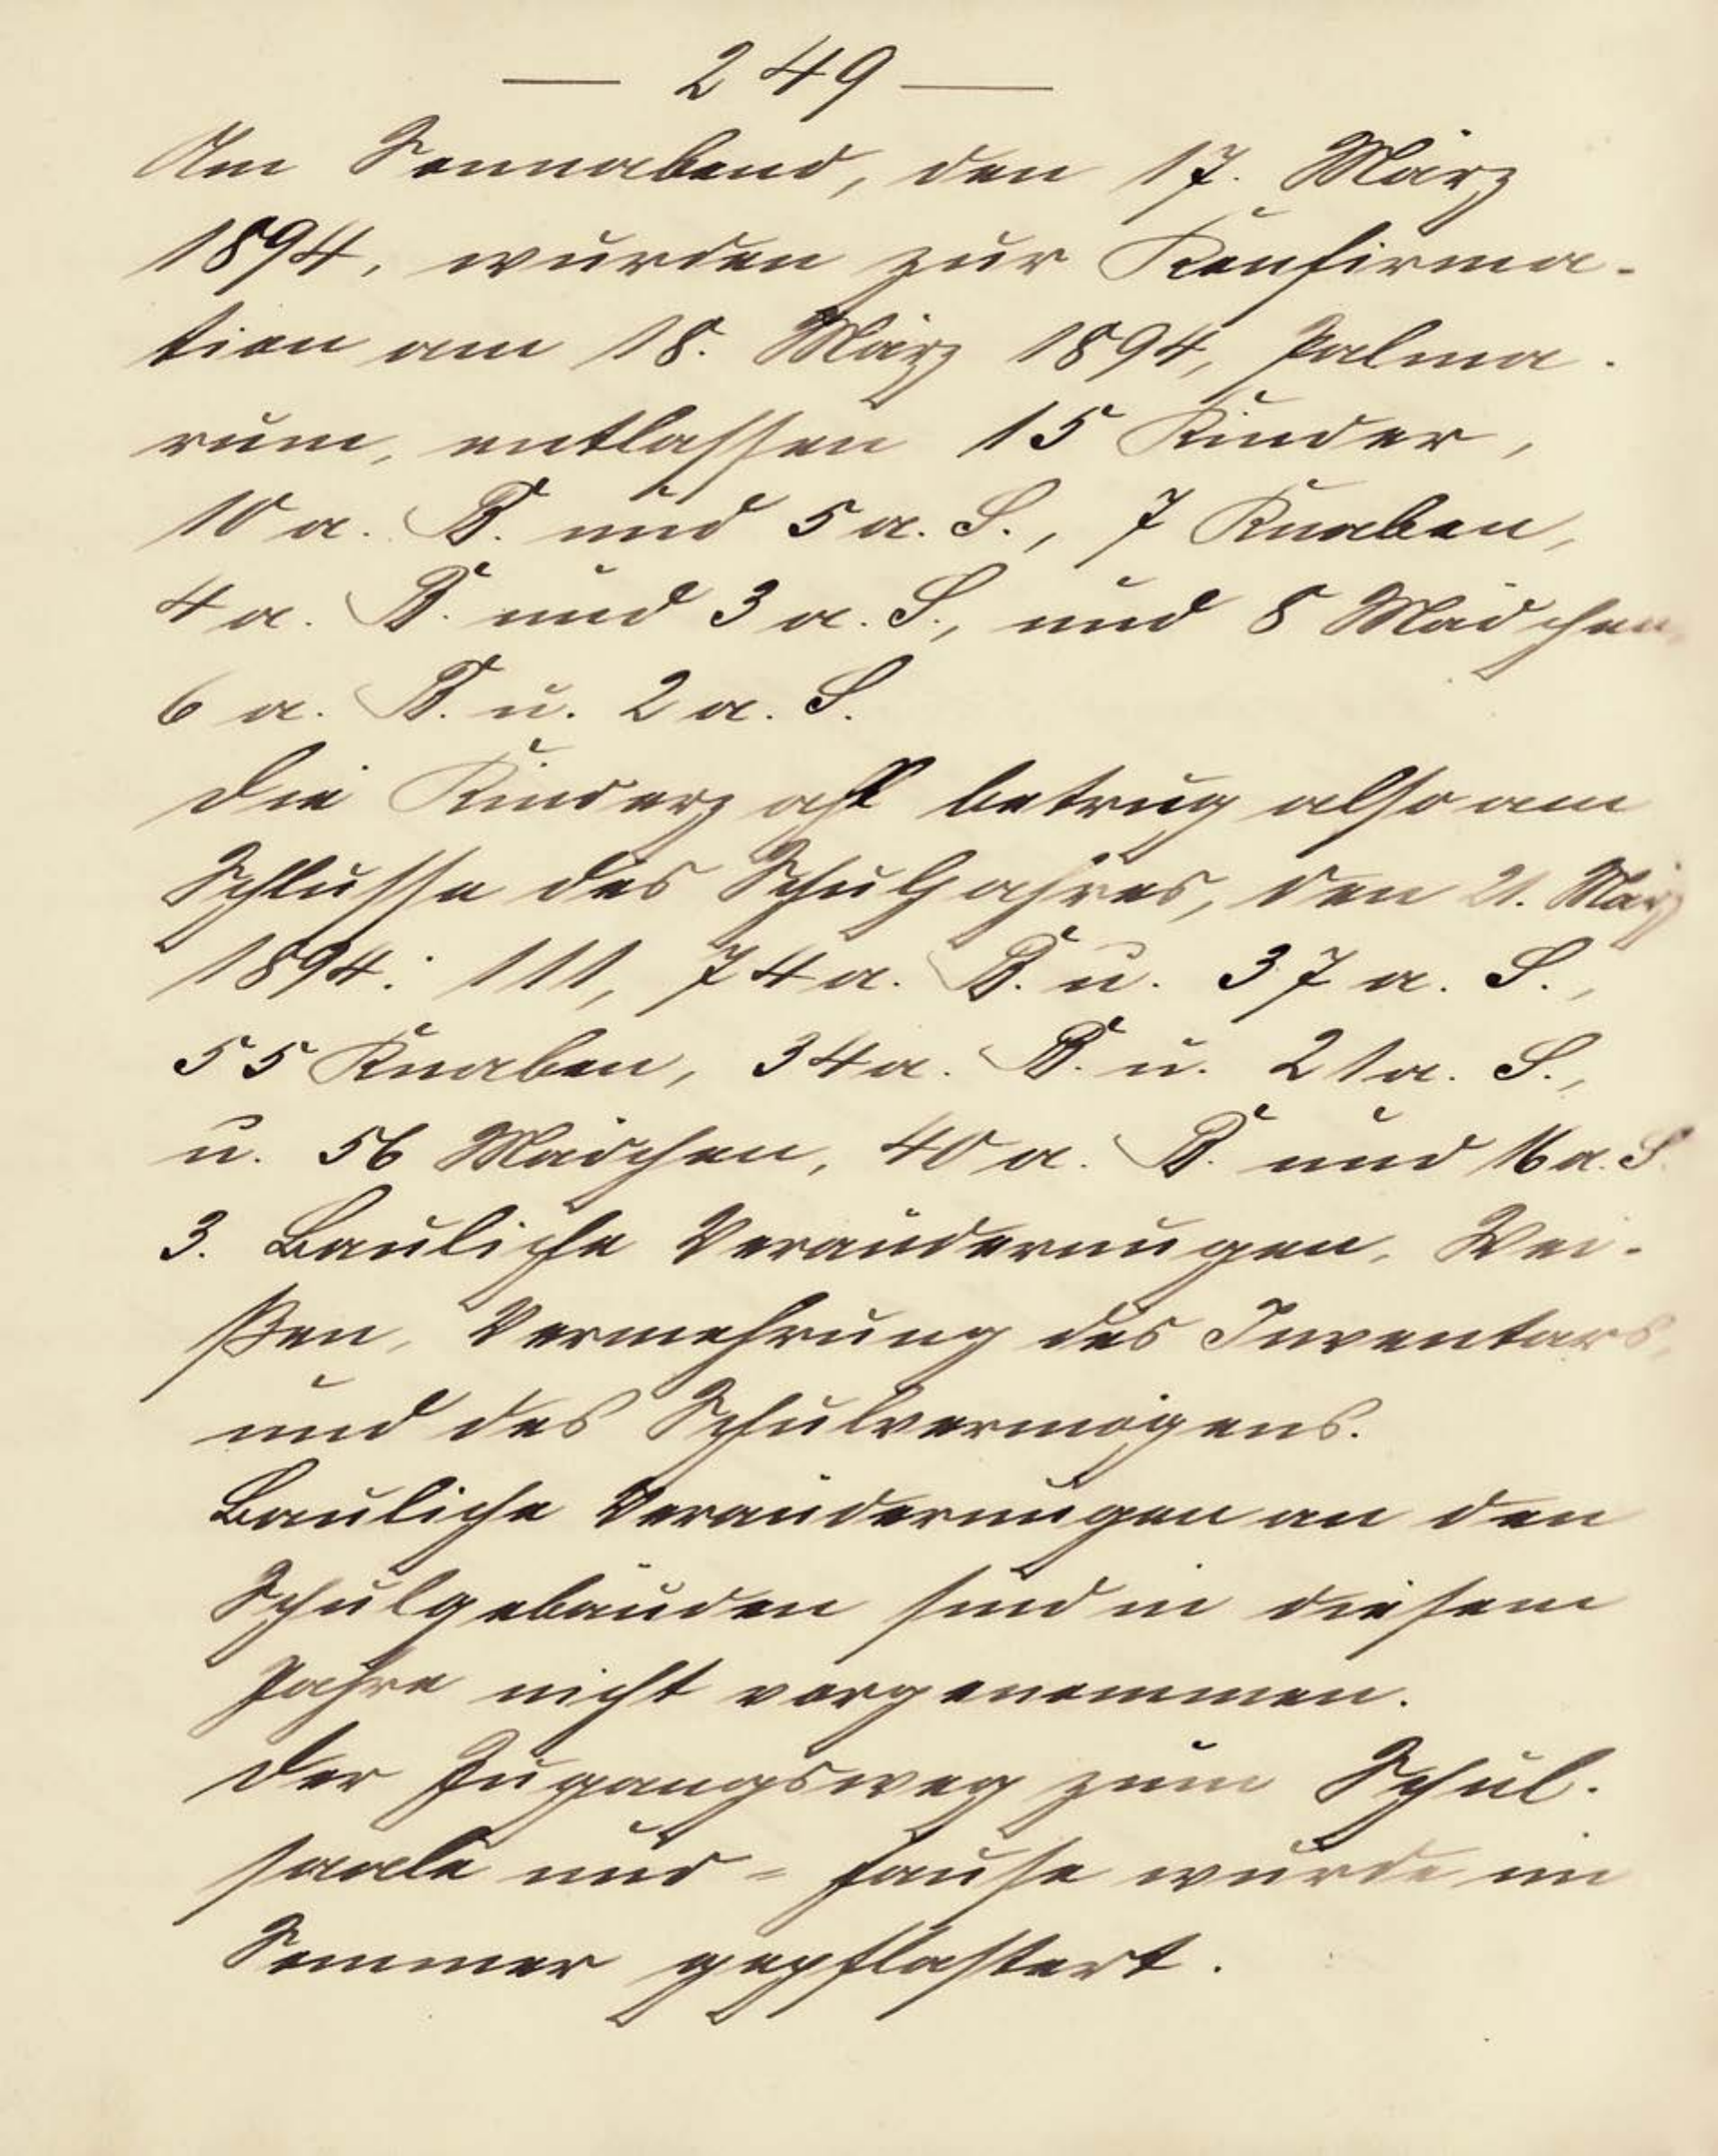 — 249 —
Am Sonnabend, den 17. März
1894, wurden zur Konfirma-
tion am 18. März 1894, Palma-
rum, entlassen 15 Kinder,
10 a. B. und 5 a. S., 7 Knaben,
4 a. B. und 3 a. S., und 8 Mädchen,
6 a. B. u. 2 a. S.
Die Kinderzahl betrug also am
Schlusse des Schuljahres, den 21. März
1894: 111, 74 a. B. u. 37 a. S.,
55 Knaben, 34 a. B. u. 21 a. S.,
u. 56 Mädchen, 40 a. B. und 16 a. S.
3. Bauliche Veränderungen, Wei-
ßen, Vermehrung des Inventars,
und des Schulvermögens.
Bauliche Veränderungen an den
Schulgebäuden sind in diesem
Jahre nicht vorgenommen.
Der Zugangsweg zum Schul-
saale und -hause wurde im
Sommer gepflastert.